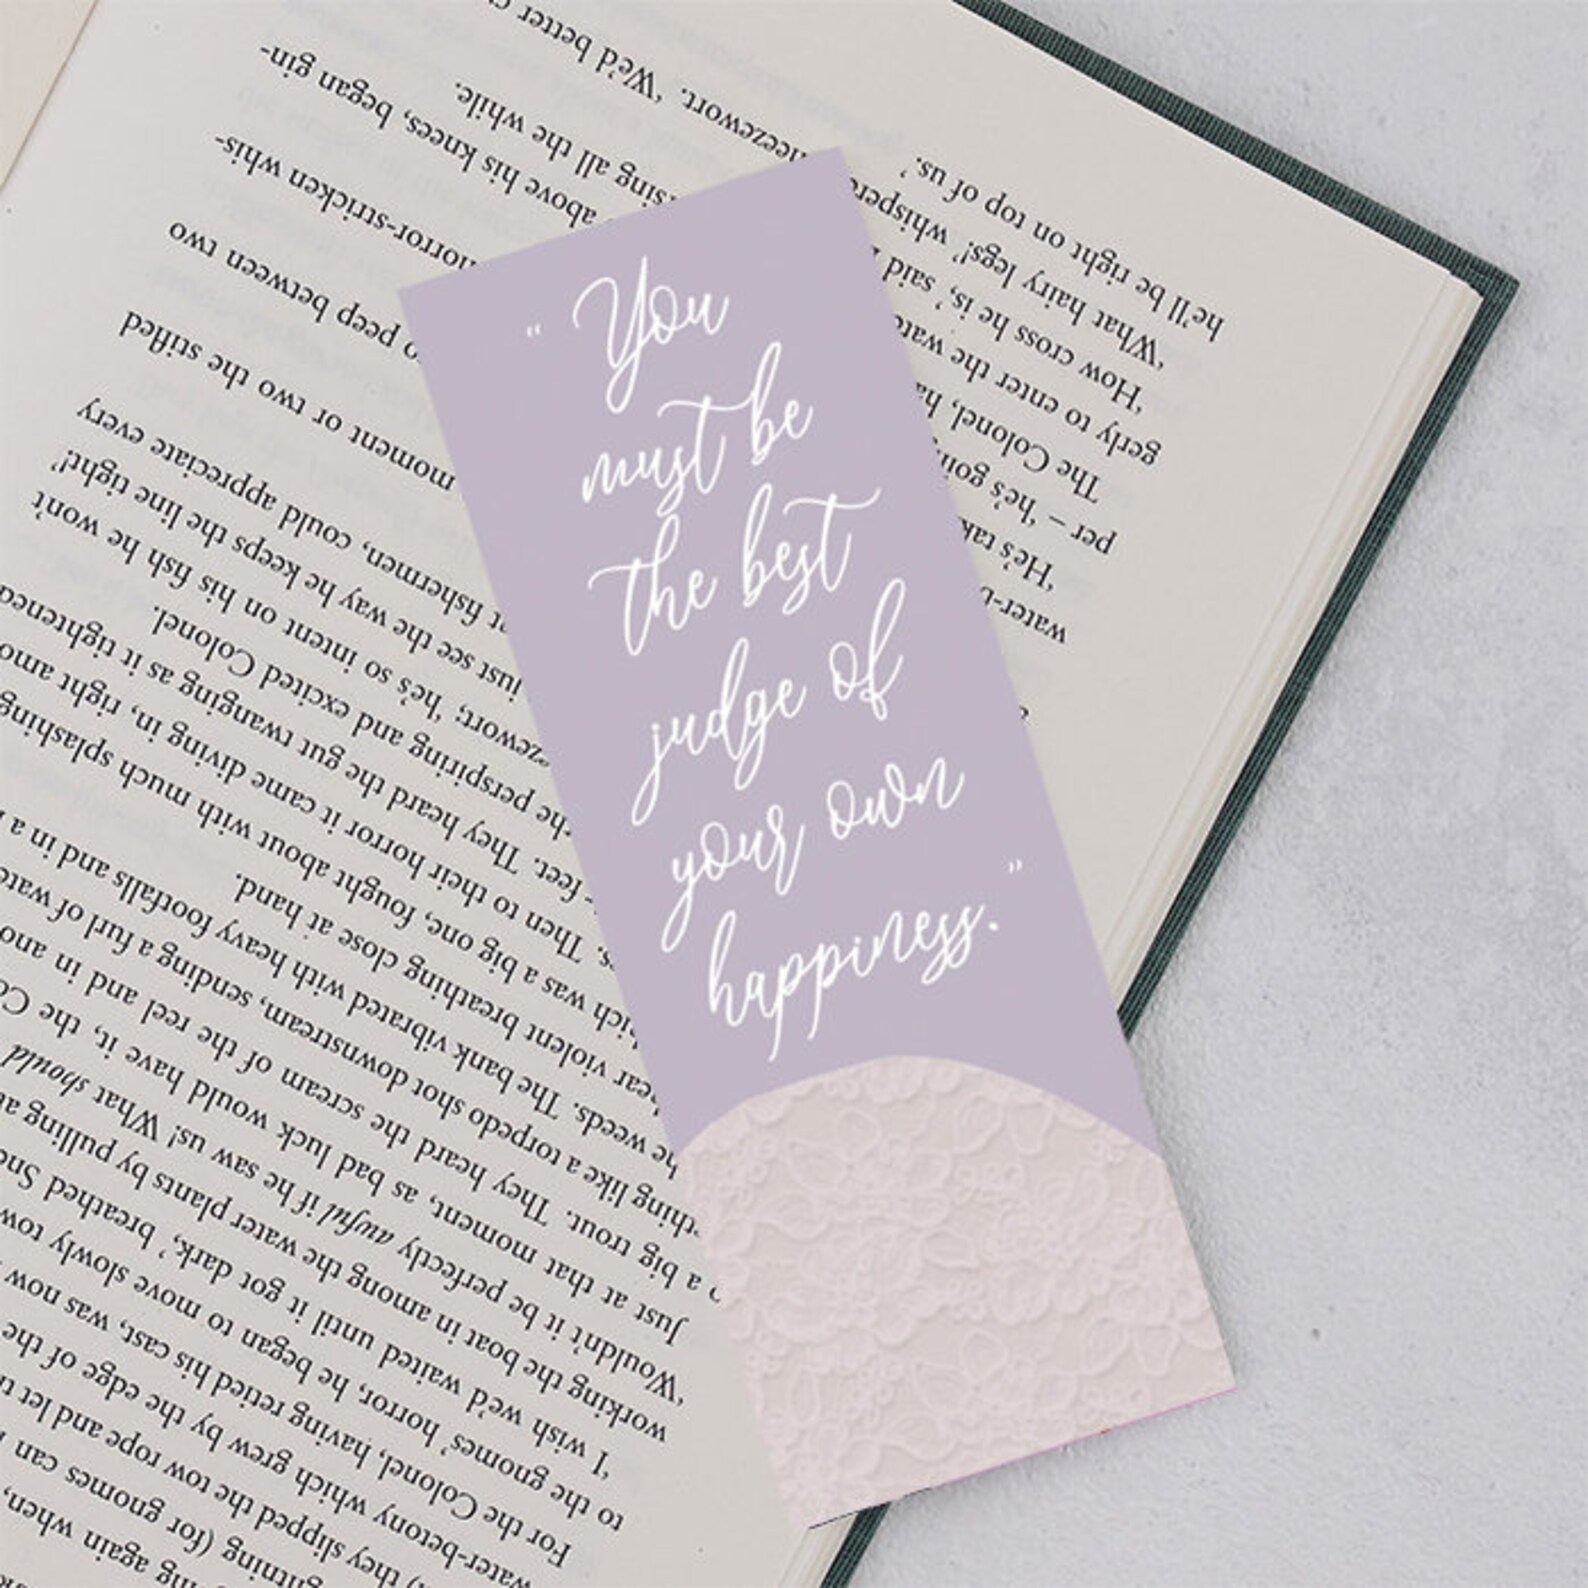 “ You
must be
the best
judge of
your own
happiness. ”
again when,
(for gnomes can
they slipped the tow rope and let
water-betony which grew by the edge of the
For the Colonel, having retied his cast, was now
to the gnomes’ horror, he began to move slowly
‘I wish we’d waited until it got dark,’ breathed
working the boat in among the water plants by pulling
‘Wouldn’t it be perfectly awful if he saw us! What should
Just at that moment, as bad luck would have it, the
a big trout. They heard the scream of the reel and in
like a torpedo shot downstream, sending a furl of
the weeds. The bank vibrated with heavy footfalls and in a
violent breathing close at hand.
was a big one, fought about with much splashing
Then to their horror it came diving in, right
feet. They heard the gut twanging as it tightened
the perspiring and excited Colonel.
‘he’s so intent on his fish he won’t
just see the way he keeps the line tight!’
fishermen, could appreciate every
moment or two the stifled
peep between two
‘He’s horror-stricken whis-
per – ‘he’s
The Colonel, above his knees, began gin-
gerly to enter the all the while.
‘How cross he is,’ said
‘What hairy legs!’ ‘We’d better
he’ll be right on top of us.’